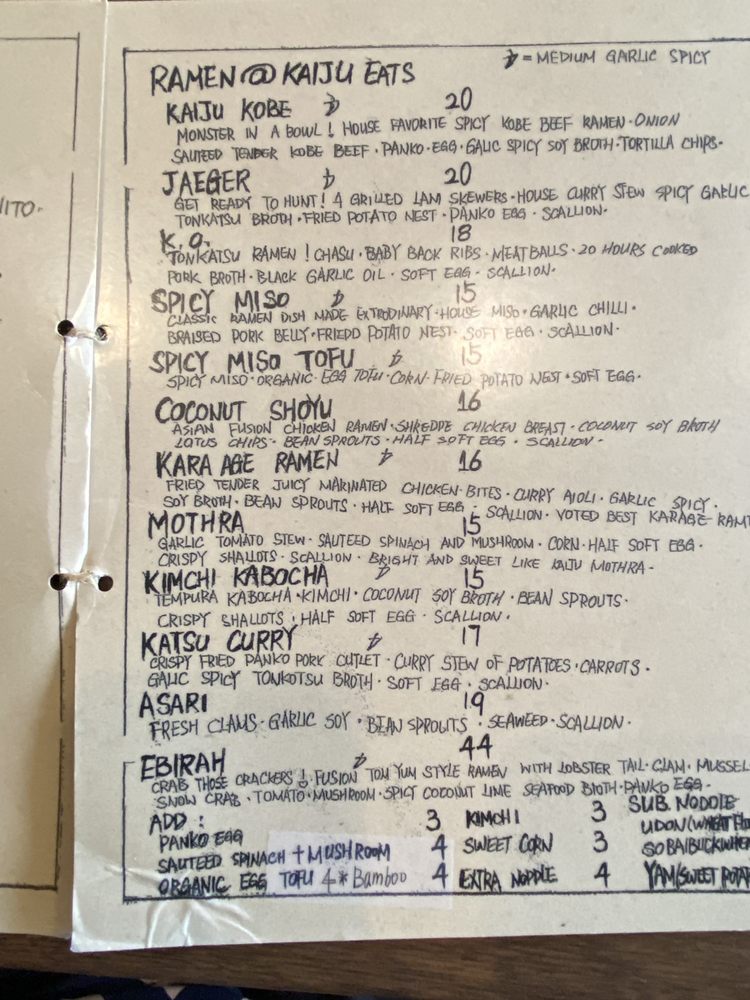 = MEDIUM GARLIC SPICY
RAMEN @ KAIJU EATS
KAIJU KOBE 20
MONSTER IN A BOWL! HOUSE FAVORITE SPICY KOBE BEEF RAMEN · ONION
SAUTEED TENDER KOBE BEEF · PANKO · EGG · GALIC SPICY SOY BROTH · TORTILLA CHIPS ·
JAEGER 20
GET READY TO HUNT! 4 GRILLED LAM SKEWERS · HOUSE CURRY STEW SPICY GARLIC
TONKATSU BROTH · FRIED POTATO NEST · PANKO EGG · SCALLION ·
K.O. 18
TONKATSU RAMEN! CHASU · BABY BACK RIBS · MEATBALLS · 20 HOURS COOKED
PORK BROTH · BLACK GARLIC OIL · SOFT EGG · SCALLION ·
SPICY MISO 15
CLASSIC RAMEN DISH MADE EXTRODINARY · HOUSE MISO · GARLIC CHILLI ·
BRAISED PORK BELLY · FRIEDD POTATO NEST · SOFT EGG · SCALLION ·
SPICY MISO TOFU 15
SPICY MISO · ORGANIC · EGG TOFU · CORN · FRIED POTATO NEST · SOFT EGG ·
COCONUT SHOYU 16
ASIAN FUSION CHICKEN RAMEN · SHREDDE CHICKEN BREAST · COCONUT SOY BROTH
LOTUS CHIPS · BEAN SPROUTS · HALF SOFT EGG · SCALLION ·
KARA AGE RAMEN 16
FRIED TENDER JUICY MARINATED CHICKEN BITES · CURRY AIOLI · GARLIC SPICY ·
SOY BROTH · BEAN SPROUTS · HALF SOFT EGG · SCALLION · VOTED BEST KARAGE RAM
MOTHRA 15
GARLIC TOMATO STEW · SAUTEED SPINACH AND MUSHROOM · CORN · HALF SOFT EGG ·
CRISPY SHALLOTS · SCALLION · BRIGHT AND SWEET LIKE KAIJU MOTHRA ·
KIMCHI KABOCHA 15
TEMPURA KABOCHA · KIMCHI · COCONUT SOY BROTH · BEAN SPROUTS ·
CRISPY SHALLOTS · HALF SOFT EGG · SCALLION ·
KATSU CURRY 17
CRISPY FRIED PANKO PORK CUTLET · CURRY STEW OF POTATOES · CARROTS ·
GALIC SPICY TONKOTSU BROTH · SOFT EGG · SCALLION ·
ASARI 19
FRESH CLAMS · GARLIC SOY · BEAN SPROUTS · SEAWEED · SCALLION ·
EBIRAH 44
CRAB THOSE CRACKERS! FUSION TOM YUM STYLE RAMEN WITH LOBSTER TAIL · CLAM · MUSSEL
SNOW CRAB · TOMATO · MUSHROOM · SPICY COCONUT LIME SEAFOOD BROTH · PANKO EGG ·
ADD :
PANKO EGG 3
SAUTEED SPINACH + MUSHROOM 4
ORGANIC EGG TOFU 4 * Bamboo 4
KIMCHI 3
SWEET CORN 3
EXTRA NOODLE 4
SUB NOODLE
UDON (WHEAT
SOBA (BUCKWHE
YAM/SWEET POTA